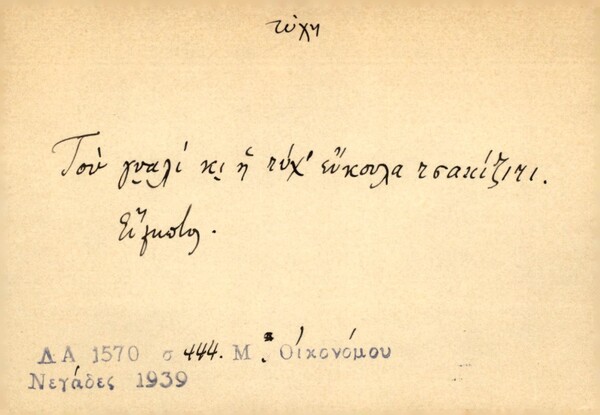 τύχη
Τοὺ γυαλί κι ἡ τύχ' εὔκουλα τσακίζιτι.
Εὔγλωττος.
ΛΑ 1570 σ 444. Μ. Οἰκονόμου
Νεγάδες 1939